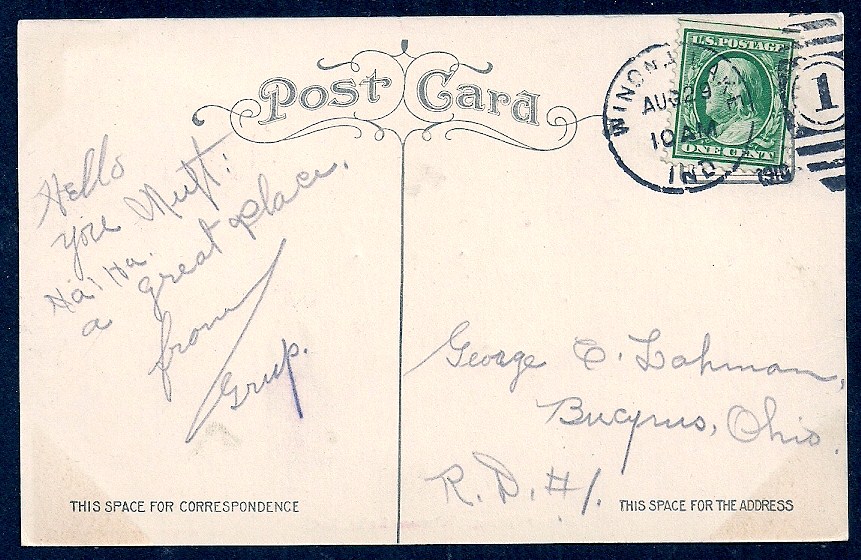 Post Card
WINONA LAKE
AUG 29
10 AM
IND
1
U.S. POSTAGE
ONE CENT
Hello
you Mutt!
Ha! Ha.
a great place.
from
Grup.
George C. Lahman,
Bucyrus, Ohio.
R. D. #1.
THIS SPACE FOR CORRESPONDENCE
THIS SPACE FOR THE ADDRESS